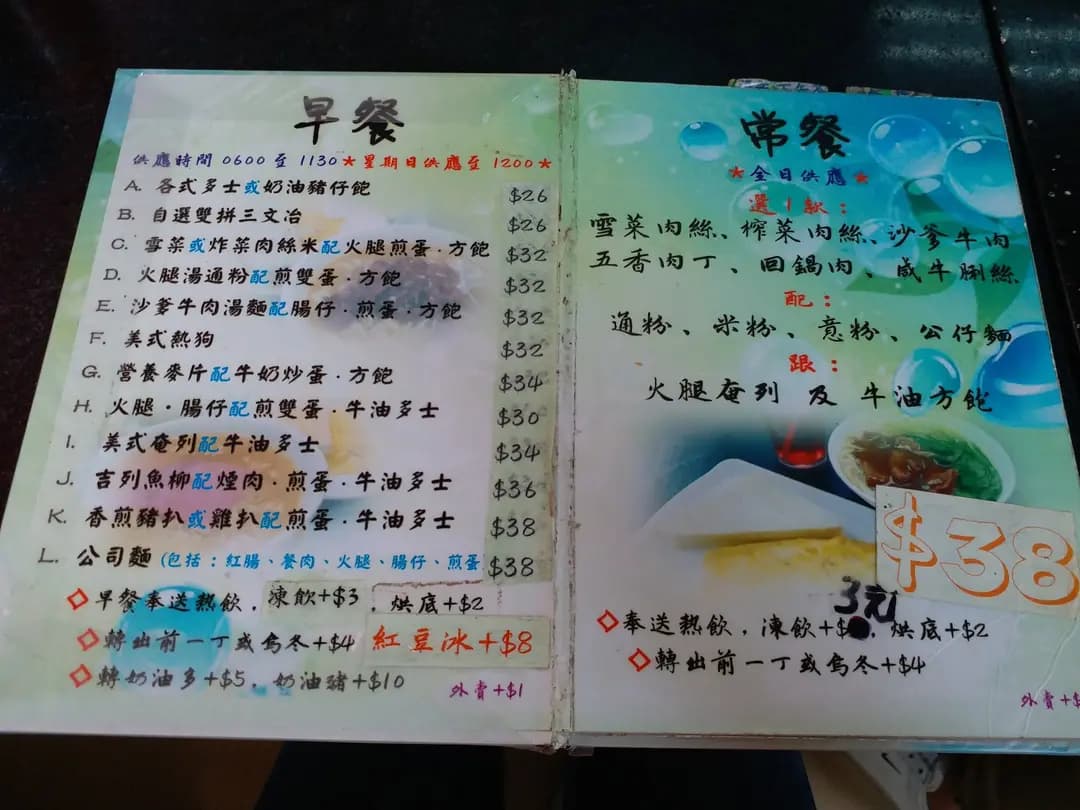 早餐
供應時間 0600 至 1130 ★ 星期日供應至 1200 ★
A. 各式多士或奶油豬仔飽 $26
B. 自選雙拼三文冶 $26
C. 雪菜或炸菜肉絲米配火腿煎蛋．方飽 $32
D. 火腿湯通粉配煎雙蛋．方飽 $32
E. 沙爹牛肉湯麵配腸仔．煎蛋．方飽 $32
F. 美式熱狗 $32
G. 營養麥片配牛奶炒蛋．方飽 $34
H. 火腿．腸仔配煎雙蛋．牛油多士 $30
I. 美式奄列配牛油多士 $34
J. 吉列魚柳配煙肉．煎蛋．牛油多士 $36
K. 香煎豬扒或雞扒配煎蛋．牛油多士 $38
L. 公司麵 (包括：紅腸、餐肉、火腿、腸仔、煎蛋 $38
早餐奉送熱飲，凍飲+$3，烘底+$2
轉出前一丁或烏冬+$4 紅豆冰+$8
轉奶油多+$5，奶油豬+$10
外賣+$1
常餐
★全日供應★
選1款：
雪菜肉絲、榨菜肉絲、沙爹牛肉
五香肉丁、回鍋肉、咸牛脷絲
配：
通粉、米粉、意粉、公仔麵
跟：
火腿奄列 及 牛油方飽
$38
3元
奉送熱飲，凍飲+$，烘底+$2
轉出前一丁或烏冬+$4
外賣+$